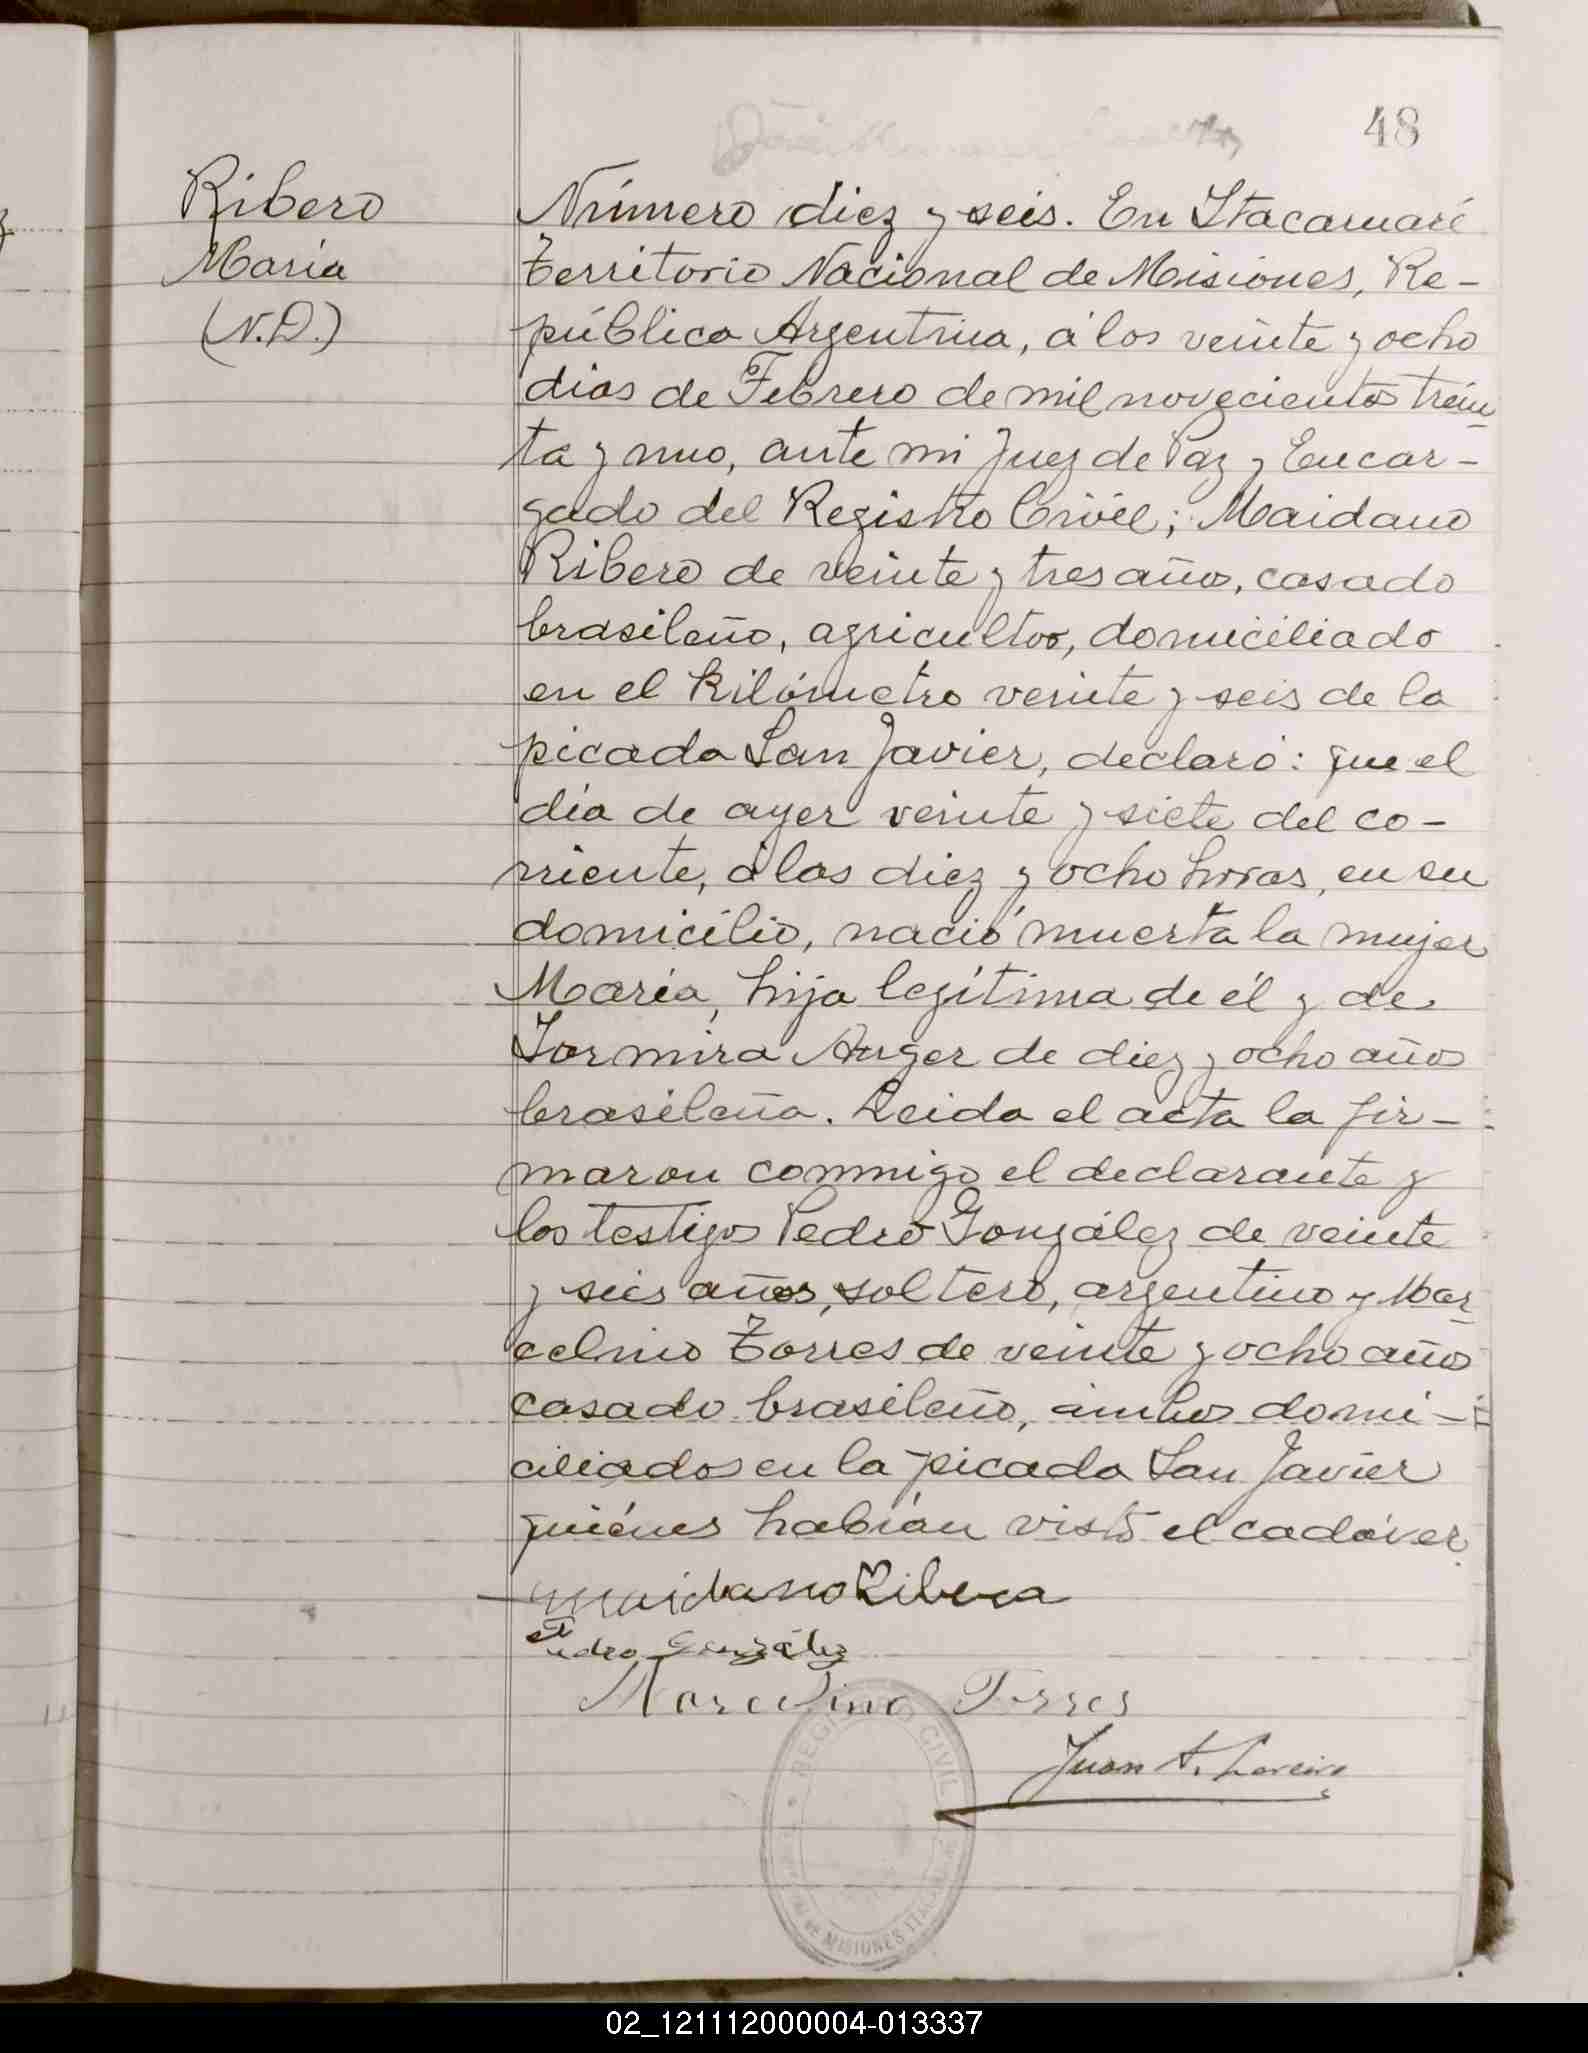 48
Ribero
María
(N.D.)
Número diez y seis. En Itacaruaré
Territorio Nacional de Misiones, Re-
pública Argentina, á los veinte y ocho
dias de Febrero de mil novecientos trein
ta y uno, ante mi Juez de Paz y Encar-
gado del Registro Civil; Maidano
Ribero de veinte y tres años, casado
brasileño, agricultor, domiciliado
en el kilómetro veinte y seis de la
picada San Javier, declaró: que el
día de ayer veinte y siete del co-
rriente, á las diez y ocho horas, en su
domicilio, nació muerta la mujer
María, hija legítima de él y de
Formira Anger de diez y ocho años
brasileña. Leida el acta la fir-
maron conmigo el declarante y
los testigos Pedro González de veinte
y seis años, soltero, argentino y Mar
celino Torres de veinte y ocho años
casado brasileño, ambos domi-
ciliados en la picada San Javier
quiénes habían visto el cadáver
Maidano Ribera
Pedro González
Marcelino Torres
Juan A.
REGISTRO CIVIL
MISIONES
02_121112000004-013337